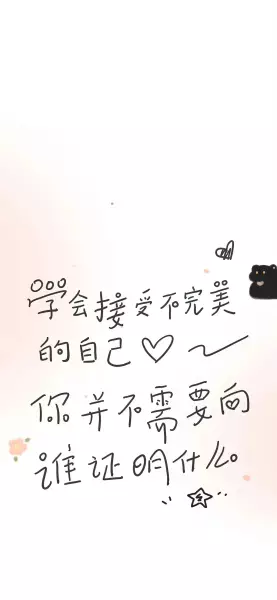 学会接受不完美
的自己♡～
你并不需要向
谁证明什么。